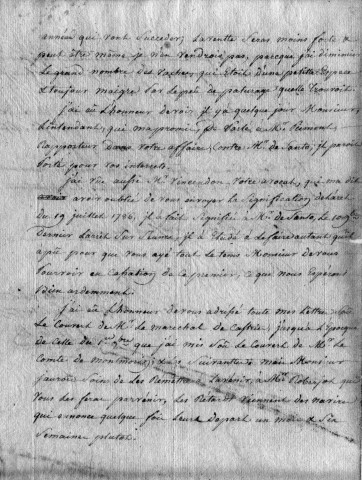 année qui vont succeder, la vente sera moins forte &
peut être même je n'en vendrois pas, parceque j'ai diminué
le grand nombre des vaches, qui étoit d'une petite Espece
& toujours maigre par le peu de paturage quelle trouvoit.
j'ai eû L'honneur de voir, il y a quelque jour Monsieur
L'intendant, qui m'a promis de parler à Mr. 
Rapporteur de votre affaire, Contre Mr. de Santo, il paroit
porté pour vos interets.
j'ai vu aussi Mr. Vincendon votre avocat, qui m'a dit
avoir oublié de vous envoyer la signification de l'arrêt
du 19 juillet 1786, il a fait signifier à Mr. de Santo, le
dernier l'arrêt Sur il à Eludé à le faire autant qu'il
a pû pour que vous ayé tout le tems Monsieur de vous
pourvoir en Cassation de ce premier, ce que nous Esperons
bien ardemment.
j'ai eû L'honneur de vous adressé toute mes Lettre sous
Le Couvert de Mr. Le marechal de Castrie, jusqu'a L'Epoque
de Celle du que j'ai mis sous le Couvert de Mr. Le
Comte de montmorin, & les Suivante, mais Monsieur
j'aurois soin de Les Remettre à L'avenir, à Mr. qui
vous les feras parvenir, Les Retards viennent des navires
qui annonce quelque fois Leurs Depart un mois & Six
Semaines plutot.